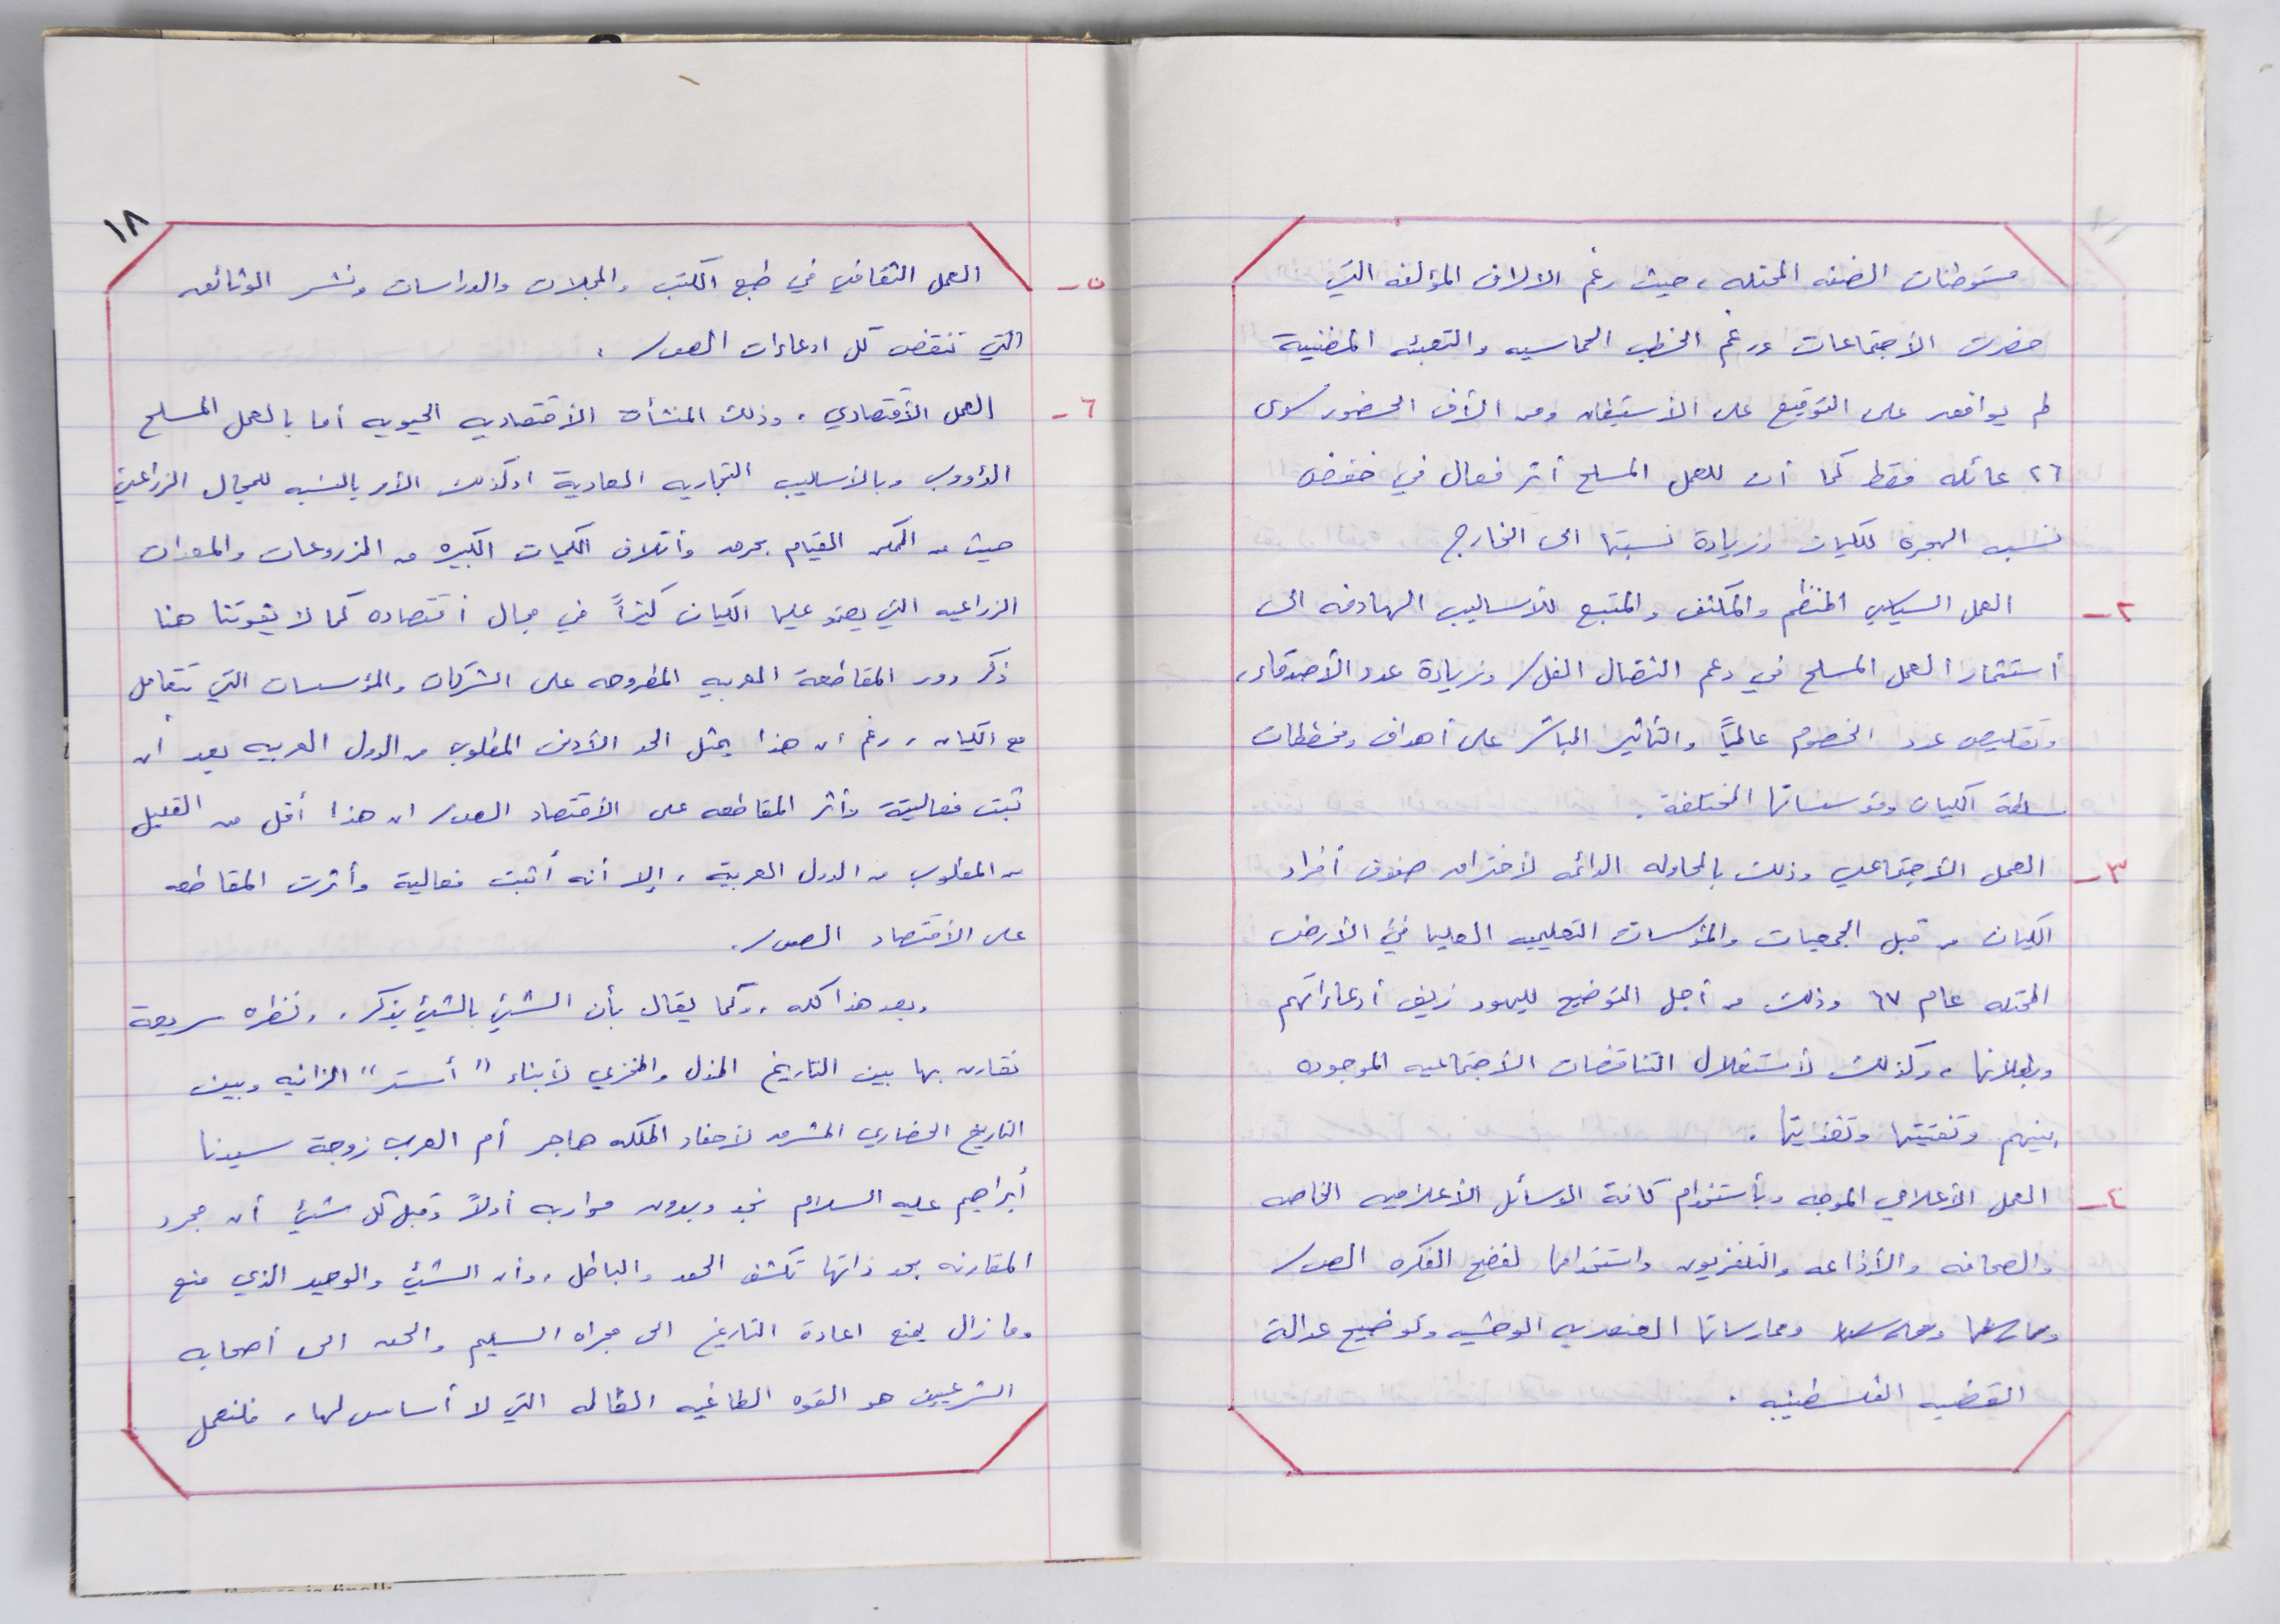 مستوطنات الضفه المحتله، حيث رغم الالاف المؤلفه التي
حضرت الأجتماعات ورغم الخطب الحماسيه والتعبئه المضنية
لم يوافق على التوقيع على الأستيطان ومن الآف الحضور سوى
٢٦ عائله فقط كما أن للعمل المسلح أثر فعال في خفض
نسبه الهجرة للكيان وزيادة نسبتها الى الخارج
٢- العمل السياسي المنظم والمكثف والمتبع للأساليب الهادفه الى
أستثمار العمل المسلح في دعم النضال الفل/ وزيادة عدد الأصدقاء،
وتقليص عدد الخصوم عالمياً والتأثير المباشر على أهداف ومخططات
سلطة الكيان ومؤسساتها المختلفة.
٣- العمل الأجتماعي وذلك بالمحاوله الدائمه لأختراق صفوف أفراد
الكيان من قبل الجمعيات والمؤسسات التعليميه العليا في الأرض
المحتله عام ٦٧ وذلك من أجل التوضيح لليهود زيف أدعاءاتهم
وبطلانها، وكذلك لأستغلال التناقضات الأجتماعيه الموجوده
بينهم وتنميتها وتغذيتها.
٤- العمل الأعلامي الموجه وبأستخدام كافة الوسائل الأعلاميه الخاصه
والصحافه والأذاعه والتلفزيون واستخدامها لفضح الفكره الصه/
وممارساتها العنصريه الوحشيه وتوضيح عدالة
القضيه الفلسطينيه.
١٨
٥- العمل الثقافي في طبع الكتب والمجلات والدراسات ونشر الوثائق
التي تنقض كل ادعاءات الصه/.
٦- العمل الأقتصادي، وذلك المنشأت الأقتصاديه الحيويه أما بالعمل المسلح
الدؤوب وبالأساليب التجاريه العادية وكذلك الأمر بالنسبه للمجال الزراعي
حيث من الممكن القيام بحرق وأتلاف الكميات الكبيره من المزروعات والمعدات
الزراعيه التي يعتمد عليها الكيان كثيراً في مجال أقتصاده كما لا يفوتنا هنا
ذكر دور المقاطعة العربيه المفروضه على الشركات والمؤسسات التي تتعامل
مع الكيان، رغم ان هذا يمثل الحد الأدنى المطلوب من الدول العربيه بعد أن
ثبت فعاليتة وأثر المقاطعه على الأقتصاد الصه/ ان هذا أقل من القليل
من المطلوب من الدول العربية، إلا أنه أثبت فعالية وأثرت المقاطعه
على الأقتصاد الصه/.
وبعد هذا كله، وكما يقال بأن الشيئ بالشيئ يذكر، ونظره سريعة
نقارن بها بين التاريخ المذل والمخزي لأبناء "أستر" الزانيه وبين
التاريخ الحضاري المشرق لأحفاد الملكه هاجر أم العرب زوجة سيدنا
أبراهيم عليه السلام نجد وبدون مواربه أولاً وقبل كل شيئ أن مجرد
المقارنه بحد ذاتها تكشف الحق والباطل، وأن الشيئ والوحيد الذي منع
وما زال يمنع اعادة التاريخ الى مجراه السليم والحق الى أصحابه
الشرعيين هو القوه الطاغيه الظالمه التي لا أساس لها، فلنعمل